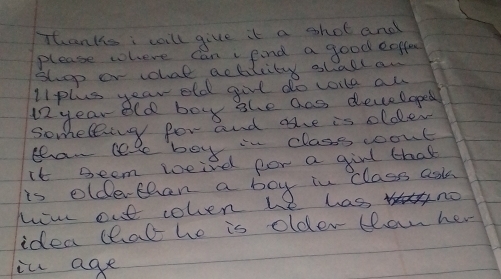 Thanks i will give it a shot and
please where can i find a good coffee
shop or what activity shall an
11 plus year old girl do with an
12 year old boy she has developed
something for and she is older
than the boy in class wont
it seem weird for a girl that
is older than a boy in class ask
him out when he has no
idea that he is older than her
in age